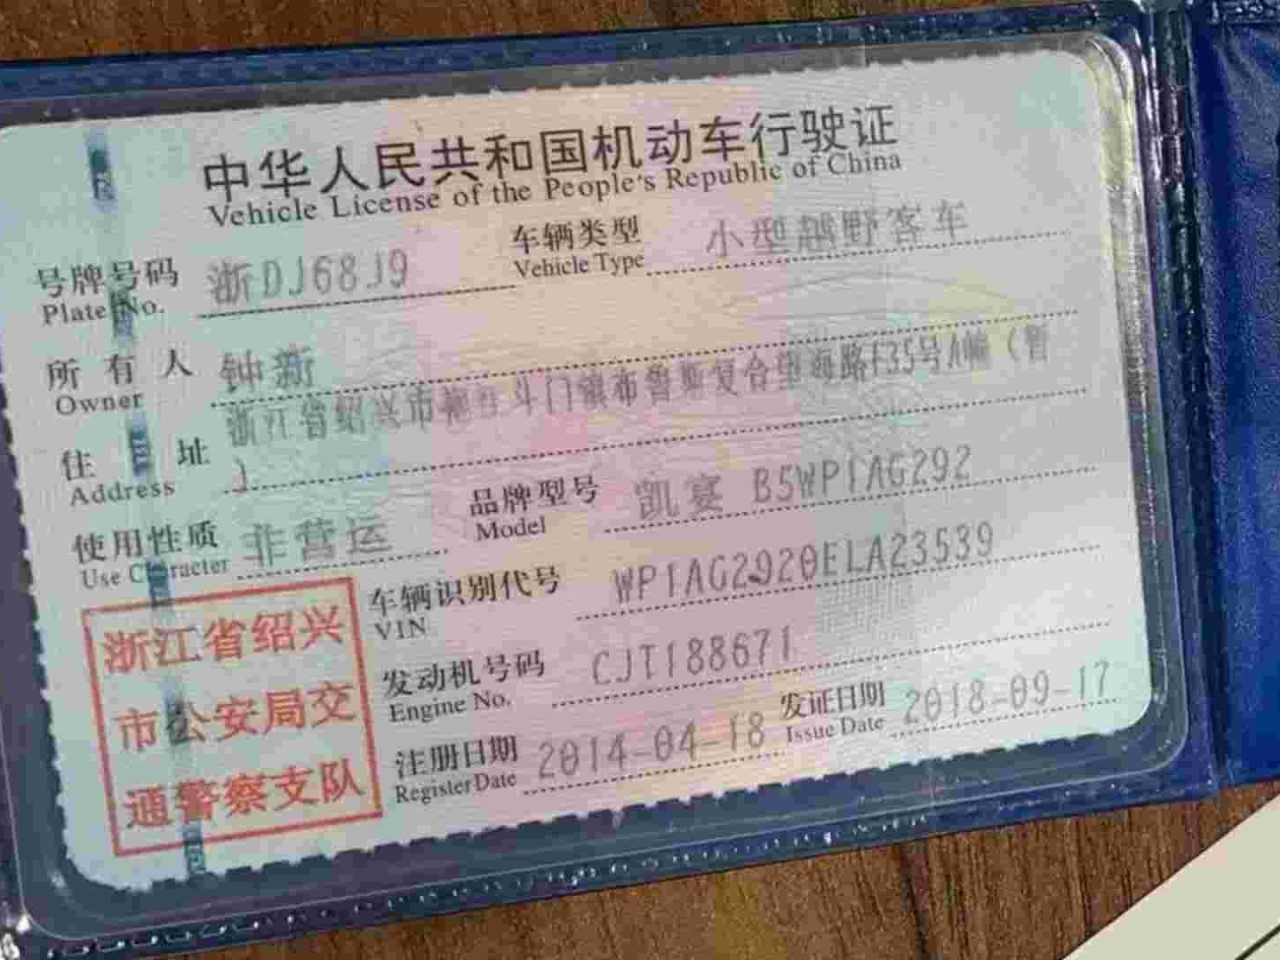 中华人民共和国机动车行驶证
Vehicle License of the People's Republic of China
号牌号码 浙DJ68J9 车辆类型 小型越野客车
Plate No. Vehicle Type
所有人 钟新
Owner
浙江省绍兴市袍江斗门镇布鲁斯复合望海路135号A幢（暂
住址 ）
Address
使用性质 非营运 品牌型号 凯宴 BSWP1AG292
Use Character Model
浙江省绍兴
市公安局交
通警察支队
车辆识别代号 WP1AG2920ELA23539
VIN
发动机号码 CJT188671
Engine No.
注册日期 2014-04-18 发证日期 2018-09-17
Register Date Issue Date